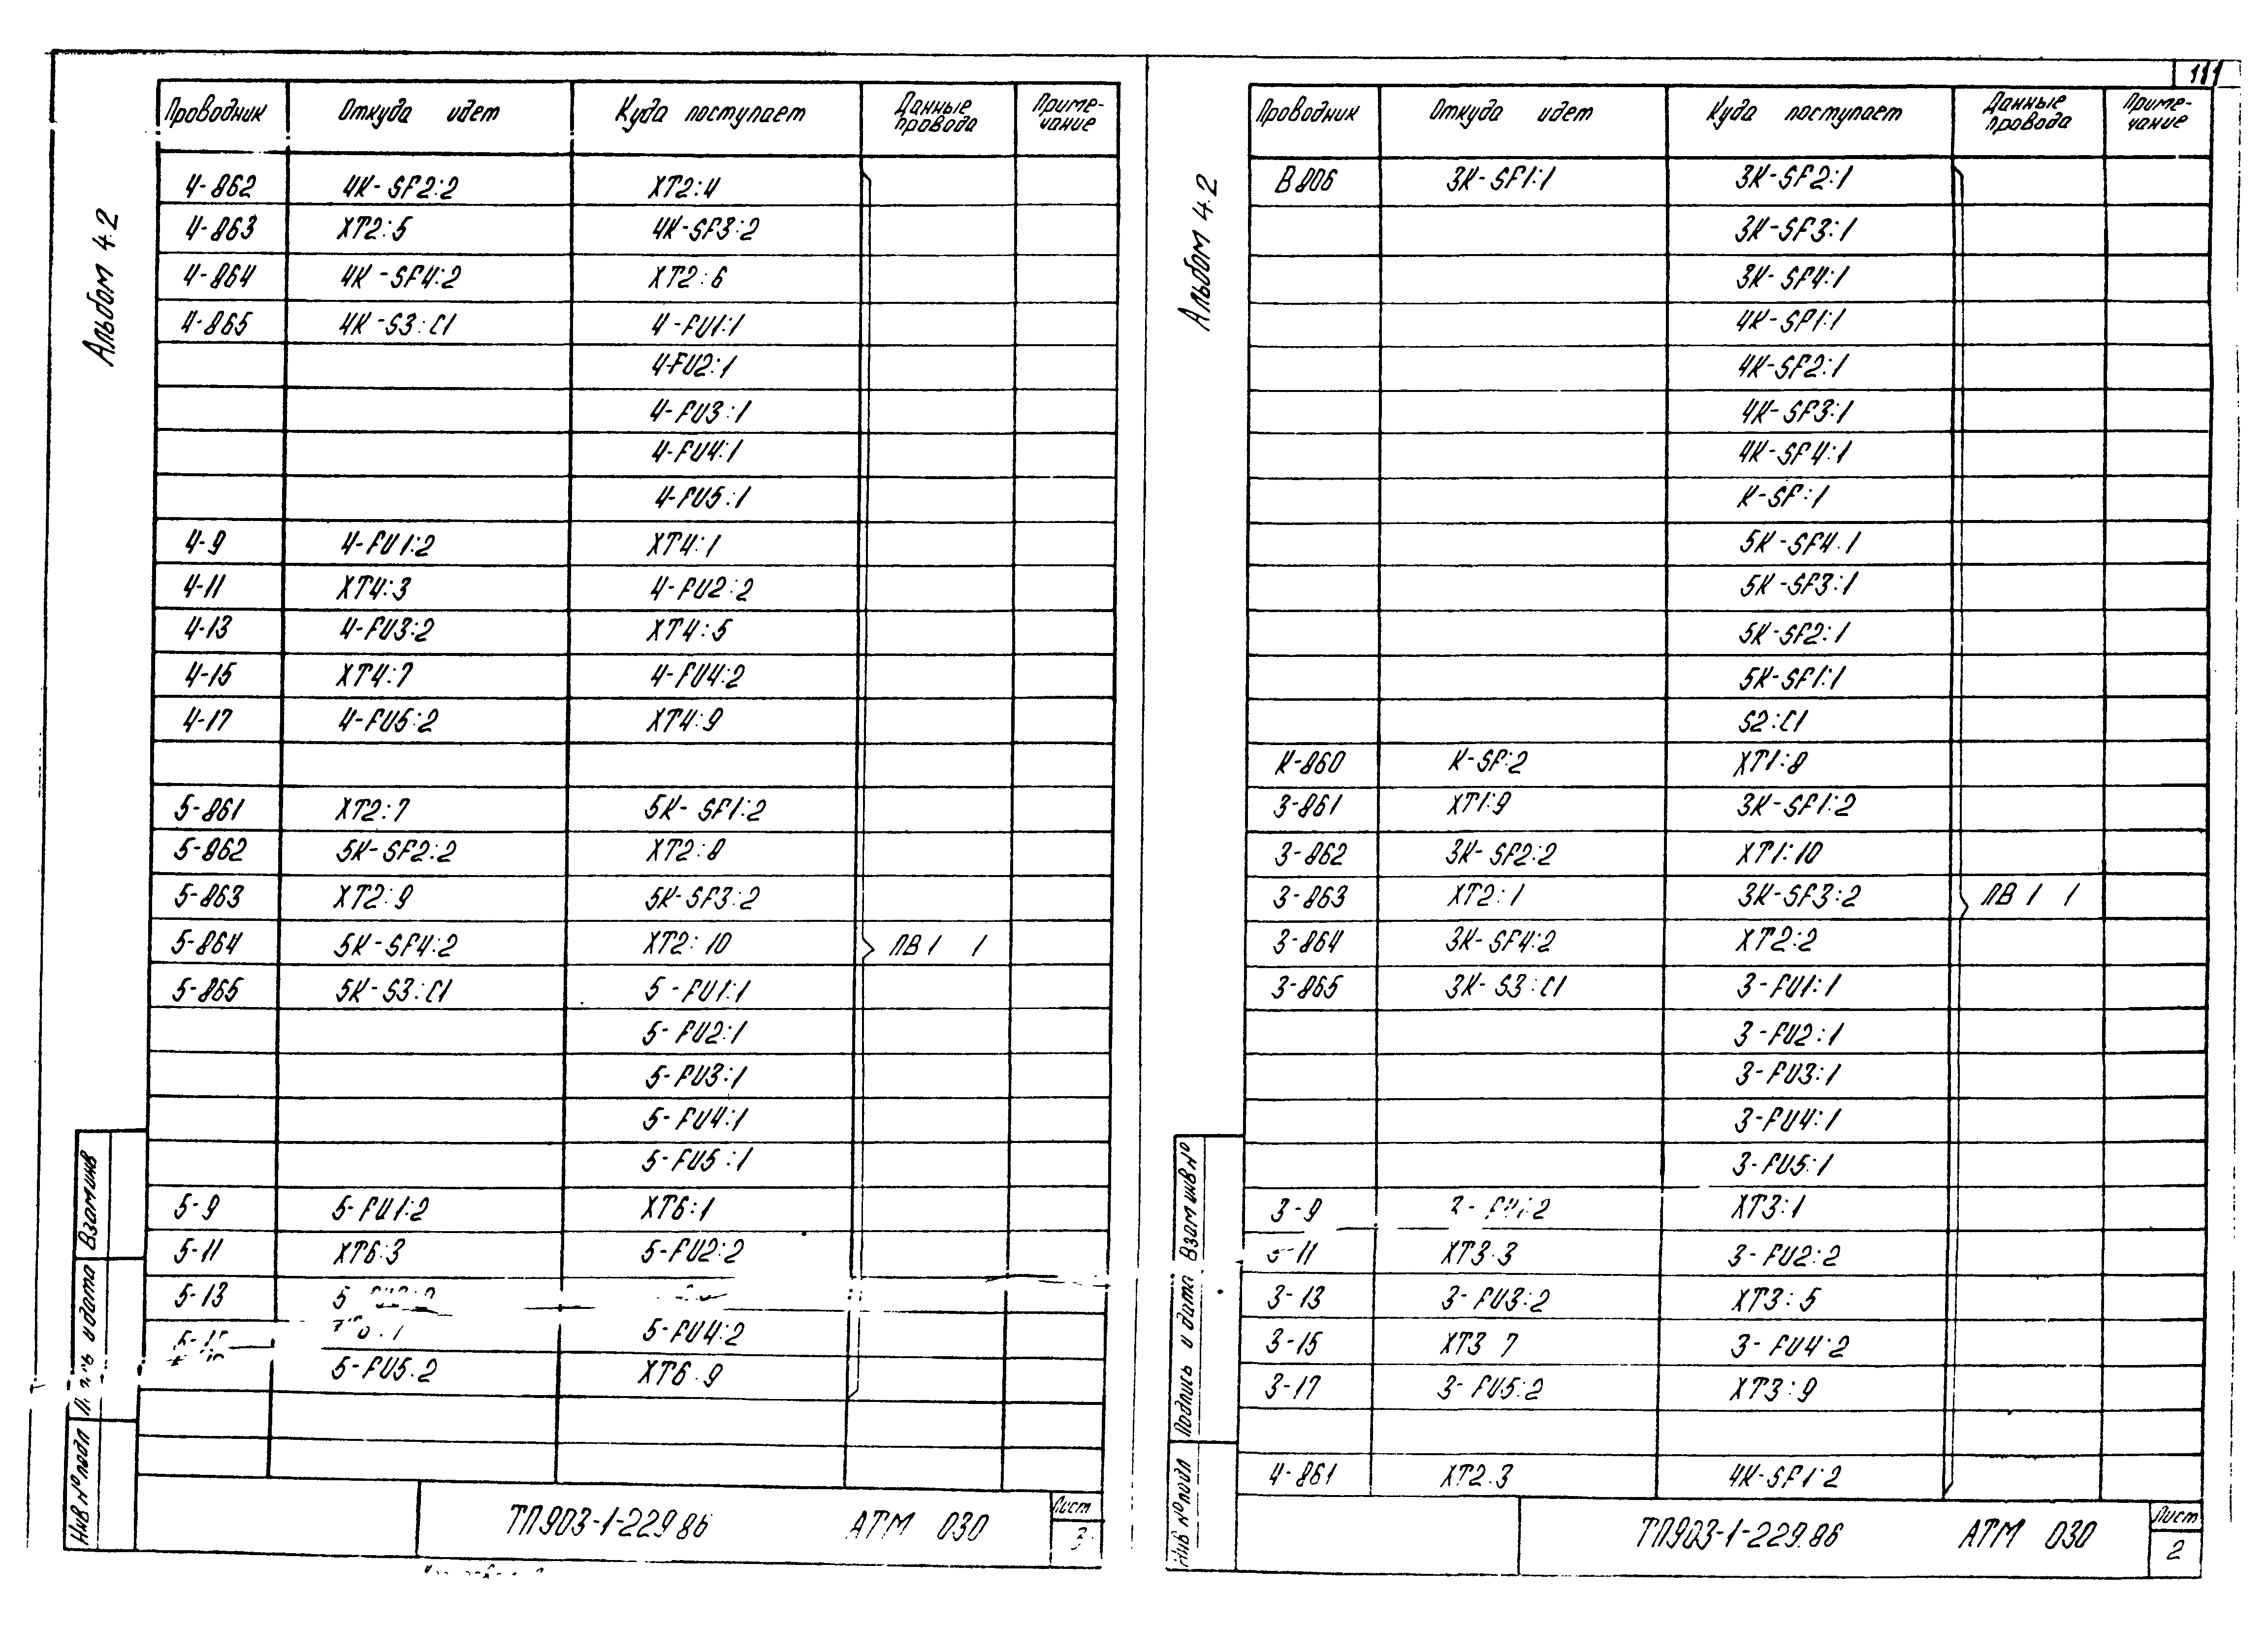 Альбом 4.2
Проводник Откуда идет Куда поступает Данные провода Приме-чание
4-862 4К-SF2:2 ХТ2:4
4-863 ХТ2:5 4К-SF3:2
4-864 4К-SF4:2 ХТ2:6
4-865 4К-S3:С1 4-FU1:1
4-FU2:1
4-FU3:1
4-FU4:1
4-FU5:1
4-9 4-FU1:2 ХТ4:1
4-11 ХТ4:3 4-FU2:2
4-13 4-FU3:2 ХТ4:5
4-15 ХТ4:7 4-FU4:2
4-17 4-FU5:2 ХТ4:9
5-861 ХТ2:7 5К-SF1:2
5-862 5К-SF2:2 ХТ2:8
5-863 ХТ2:9 5К-SF3:2
5-864 5К-SF4:2 ХТ2:10 ПВ1 1
5-865 5К-S3:С1 5-FU1:1
5-FU2:1
5-FU3:1
5-FU4:1
5-FU5:1
5-9 5-FU1:2 ХТ6:1
5-11 ХТ6:3 5-FU2:2
5-13
5-FU4:2
5-FU5:2 ХТ6:9
Взам инв
и дата
Инв № подл
ТП903-1-229.86 АТМ 030 Лист 3
111
Альбом 4.2
Проводник Откуда идет Куда поступает Данные провода Приме-чание
В806 3К-SF1:1 3К-SF2:1
3К-SF3:1
3К-SF4:1
4К-SF1:1
4К-SF2:1
4К-SF3:1
4К-SF4:1
К-SF:1
5К-SF4:1
5К-SF3:1
5К-SF2:1
5К-SF1:1
S2:С1
К-860 К-SF:2 ХТ1:8
3-861 ХТ1:9 3К-SF1:2
3-862 3К-SF2:2 ХТ1:10
3-863 ХТ2:1 3К-SF3:2 ПВ1 1
3-864 3К-SF4:2 ХТ2:2
3-865 3К-S3:С1 3-FU1:1
3-FU2:1
3-FU3:1
3-FU4:1
3-FU5:1
3-9 3-FU1:2 ХТ3:1
3-11 ХТ3:3 3-FU2:2
3-13 3-FU3:2 ХТ3:5
3-15 ХТ3 7 3-FU4:2
3-17 3-FU5:2 ХТ3:9
4-861 ХТ2:3 4К-SF1:2
Взам инв №
Подпись и дата
Инв № подл
ТП903-1-229.86 АТМ 030 Лист 2